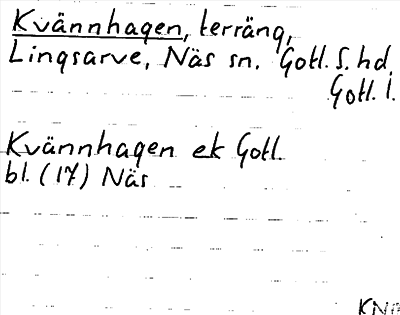 Kvännhagen, terräng,
Lingsarve, Näs sn. Gotl. S. hd
Gotl. l.
Kvännhagen ek Gotl.
bl. (17) Näs